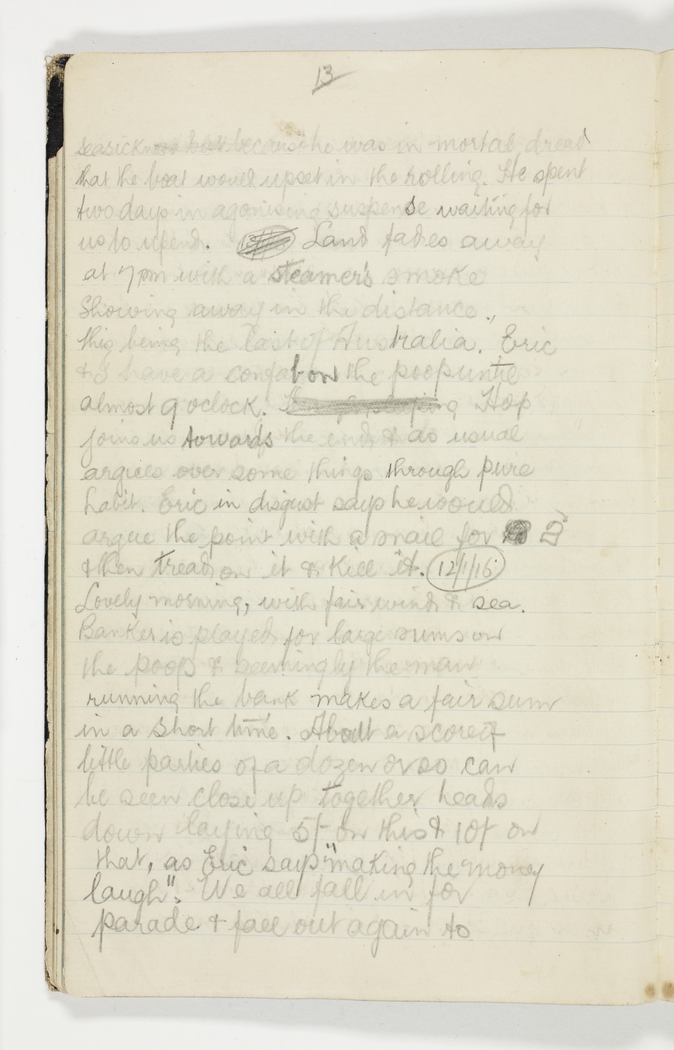 13
seasickness but because he was in mortal dread
that the boat would upset in the rolling. He spent
two days in agonising suspense waiting for
us to upend. Land fades away
at 7pm with a steamer's smoke
showing away in the distance.,
this being the last of Australia. Eric
& I have a confab on the poop until
almost 9 oclock. Hop
joins us towards the end & as usual
argues over some things through pure
habit. Eric in disgust says he would
argue the point with a snail for
& then tread on it & kill it. 12/1/16
Lovely morning, with fair wind & sea.
Banker is played for large sums on
the poop & seemingly the man
running the bank makes a fair sum
in a short time. About a score of
little parties of a dozen or so can
be seen close up together heads
down laying 5/- on this & 10/- on
that, as Eric says "making the money
laugh". We all fall in for
parade & fall out again to